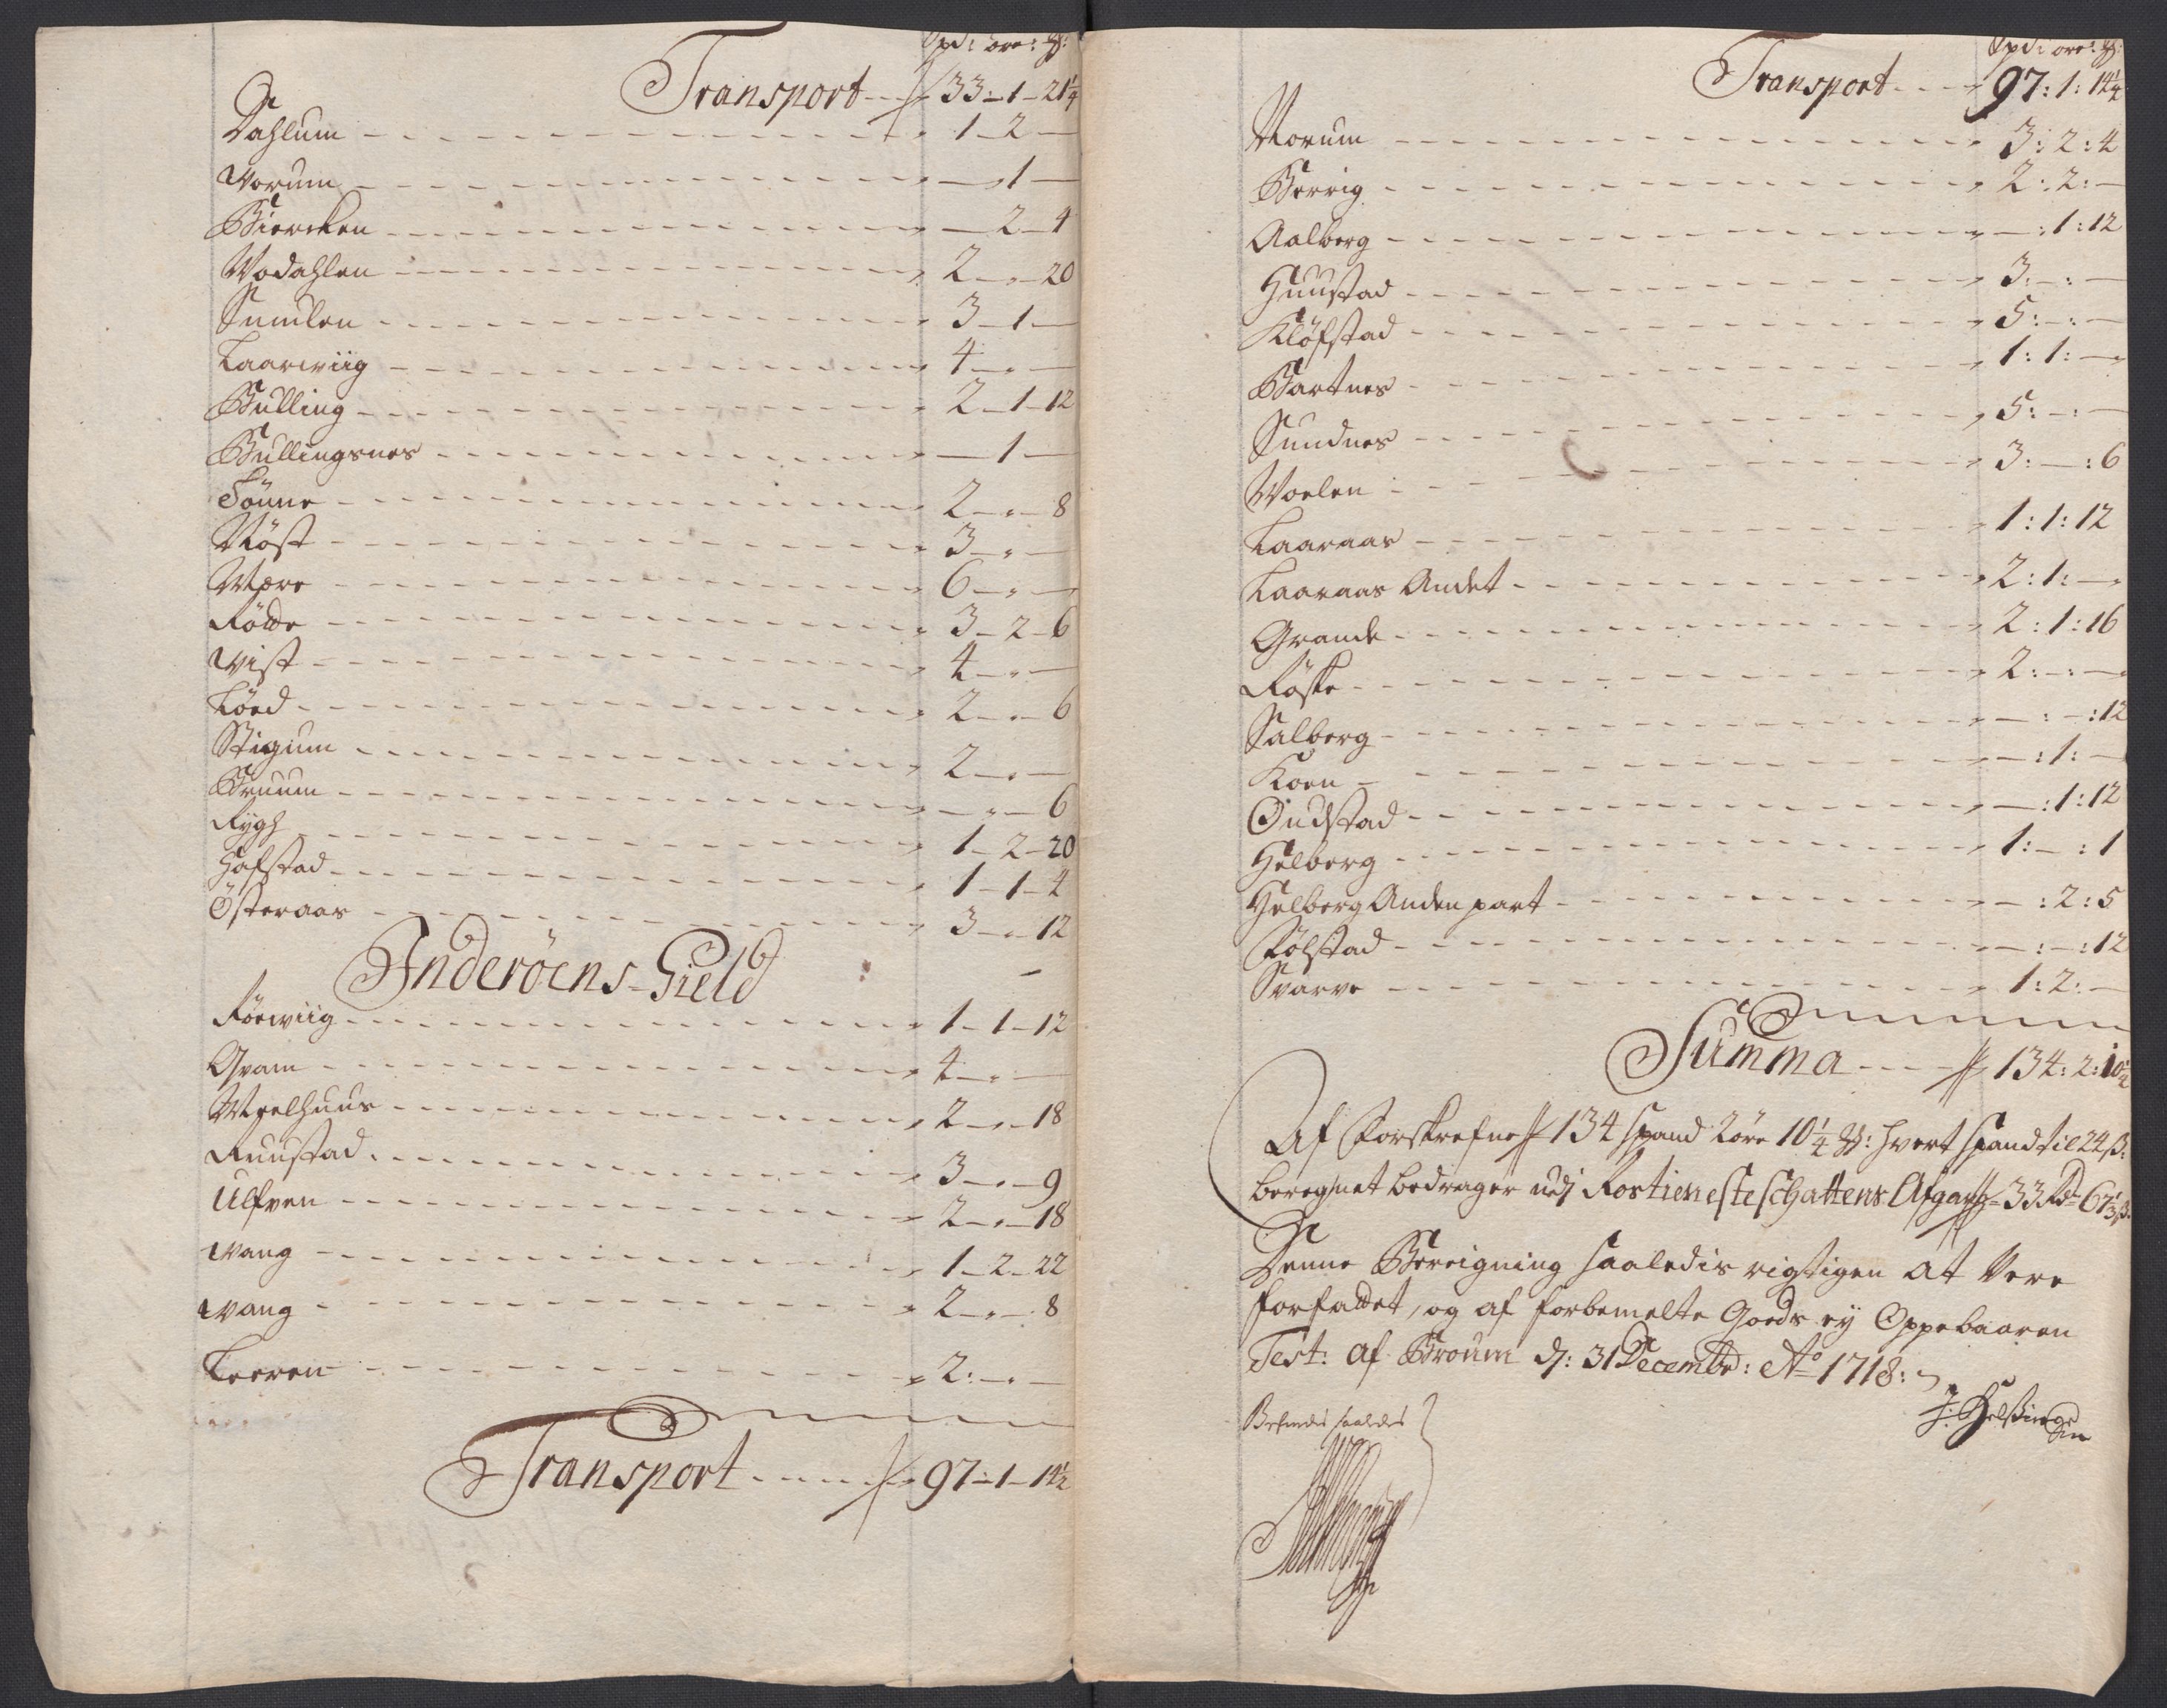 Spd: öre: ₰:
Transport 33-1-21¼
Dahlum 1-2-
Worum -1-
Biercken -2-4
Wodahlen 2-"-20
Sundlen 3-1-
Laarwiig 4-"-
Bulling 2-1-12
Bullingsnes -1-
Tönne 2-"-8
Röst 3-"-
Mære 6-"-
Rödde 3-2-6
Wist 4-"-
Löed 2-"-6
Stigum 2-"-
Bruum -"-6
Rygh 1-2-20
Hafstad 1-1-4
Österaas 3-"-12
Inderöens-Gield
Röewiig 1-1-12
Qvam 4-"-
Melhuus 2-"-18
Ruustad 3-"-9
Ulfven 2-"-18
Wang 1-2-22
Wang 2-"-8
Leeren 2:-"-
Transport 97-1-14½
Spd: öre: ₰:
Transport 97:1:14¼
Norum 3:2:4
Berrig 2:2:-
Aalberg -:1:12
Huustad 3:-:-
Klöfstad 5:-:-
Bartnes 1:1:-
Sundnes 5:-:-
Woelen 3:-:6
Laaraas 1:1:12
Laaraas Andet 2:1:-
Grande 2:1:16
Röske 2:-:-
Salberg -:-:12
Koen -:1:-
Oudstad -:1:12
Helberg 1:-:1
Helberg Anden part -:2:5
Tölstad -:-:12
Svarve 1:2:-
Summa 134:2:10¼
Af Forskrefne 134 spand 2 öre 10¼ ₰: hvert spand til 24 ß:
beregnet bedrager udj Rostienesteschattens Afgang 33 Rdr 67⅓ ß.
Denne Beregning saaledis rigtigen at Vere
forfattet, og af forbemelte Goeds ey Oppebaaren
Test: Af Broum d: 31 Decembr: Ao 1718:
Befindes saaledes